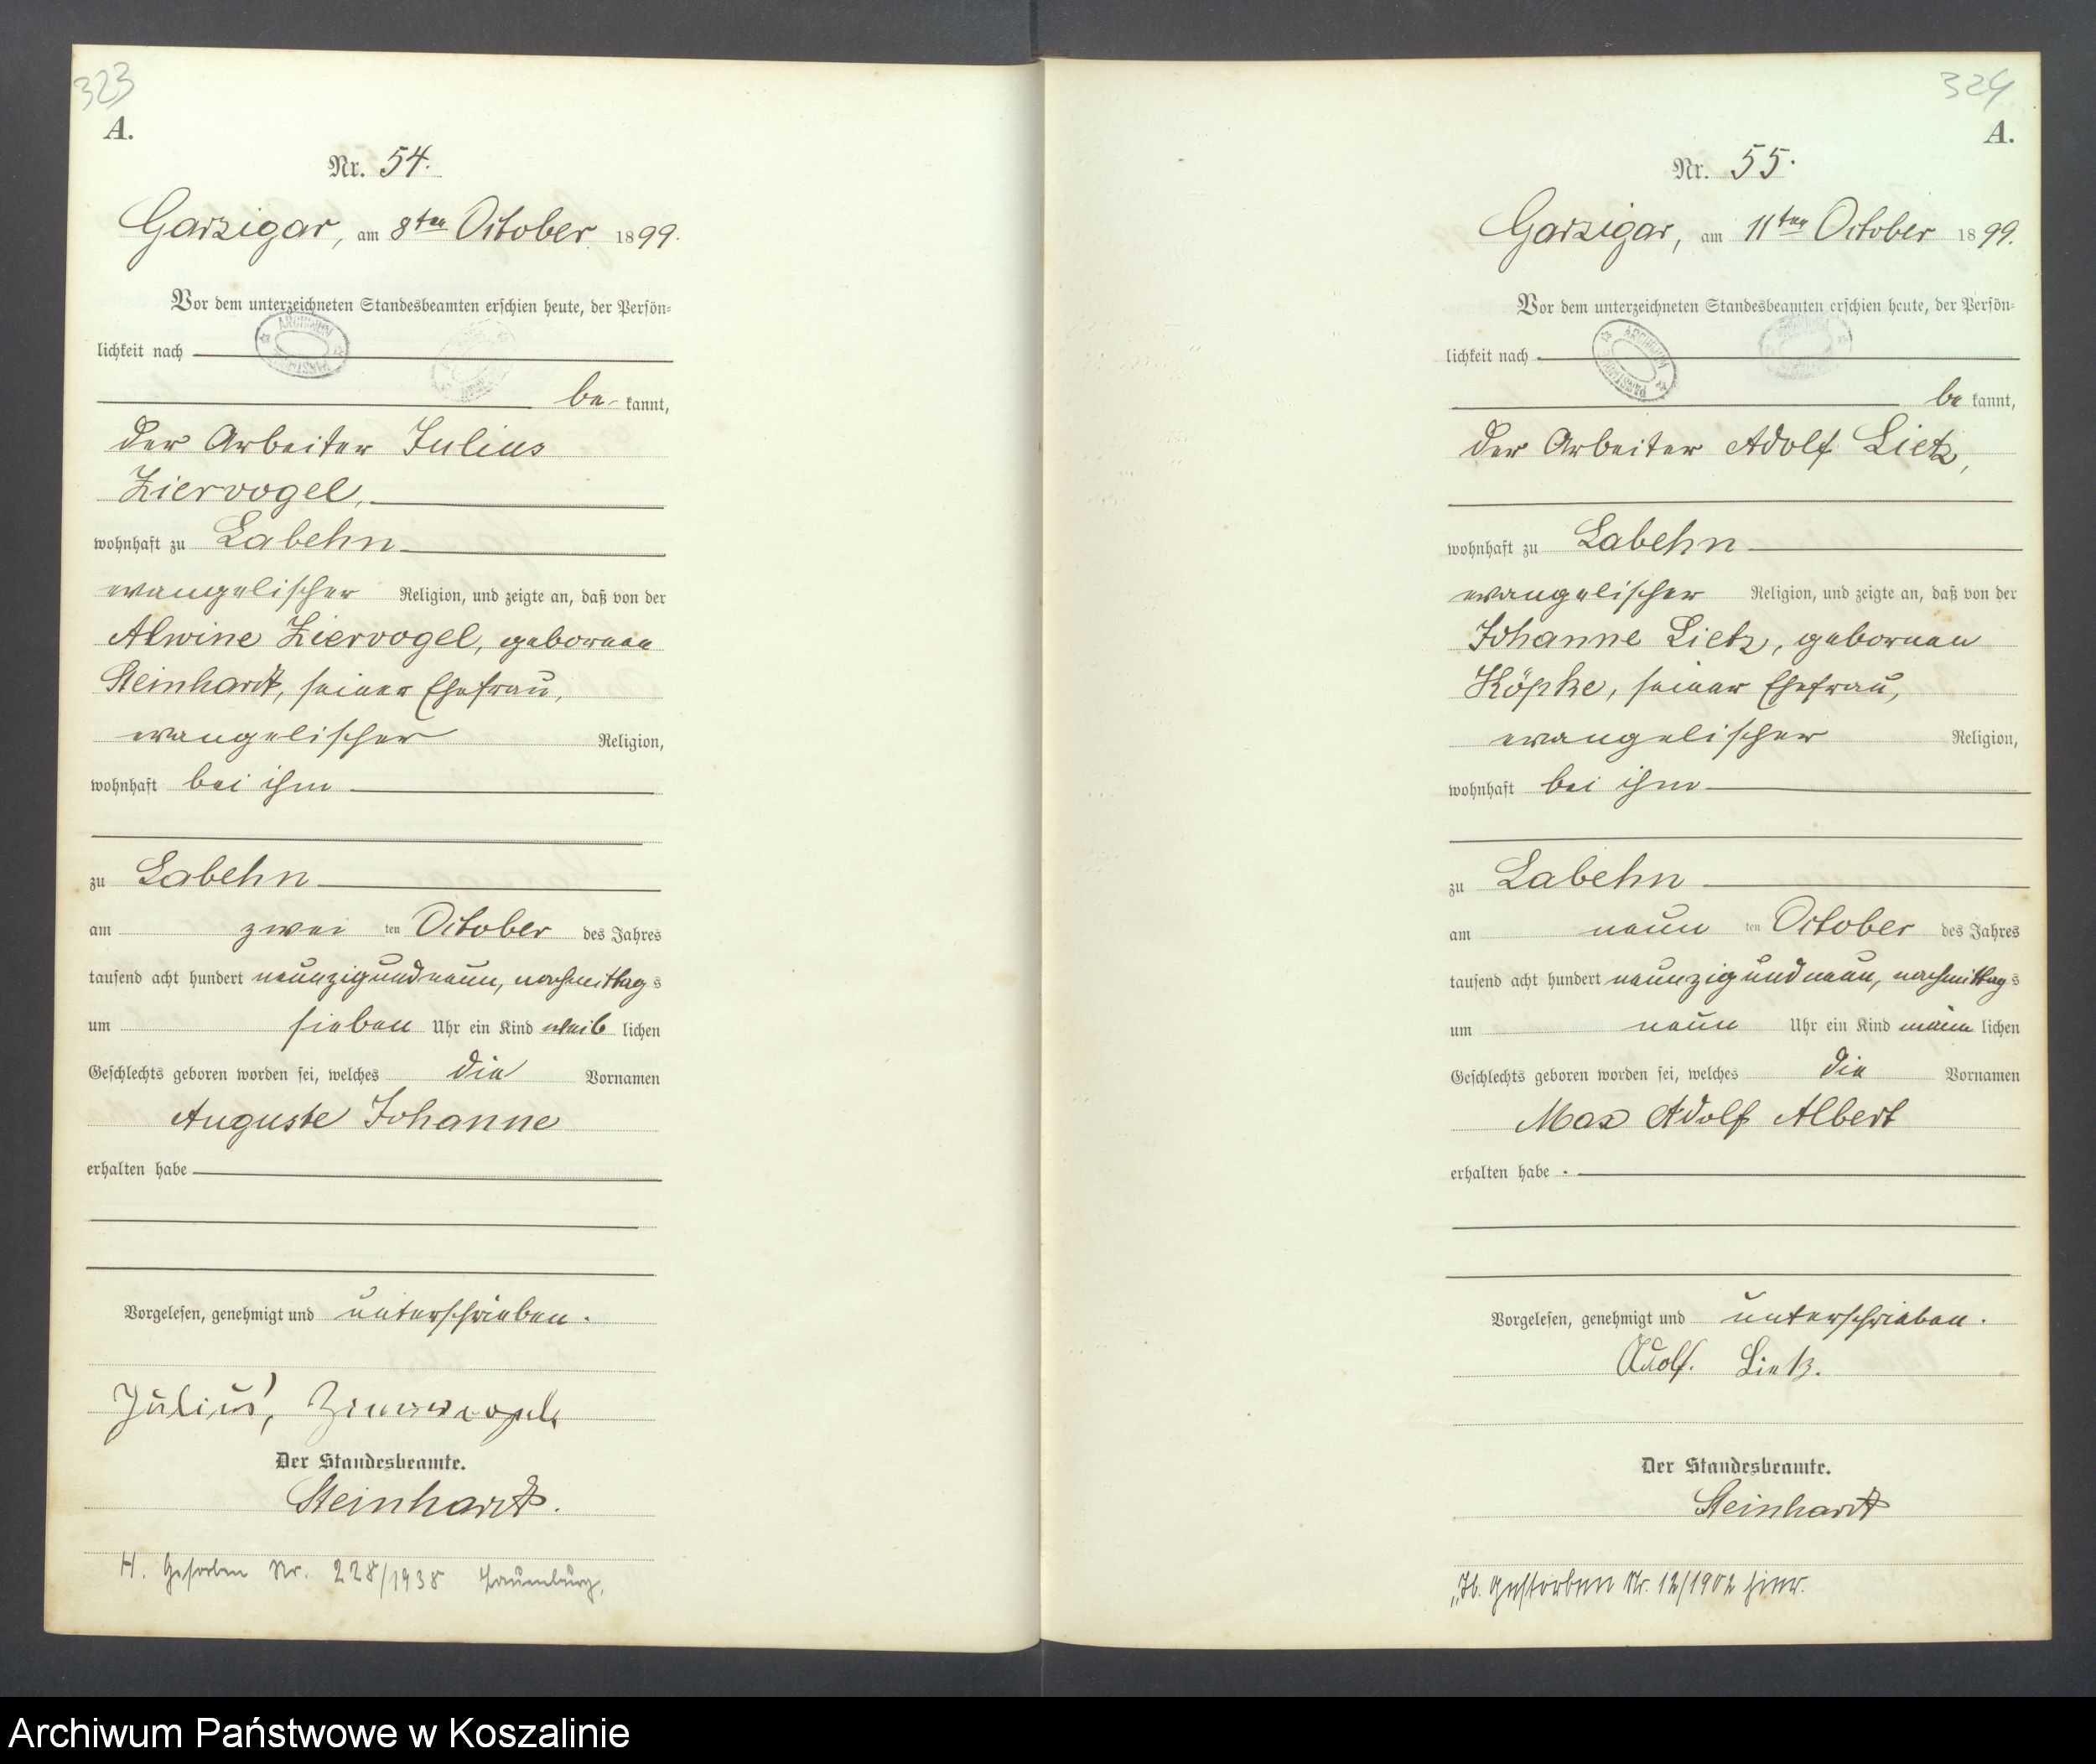 323
A.
Nr. 54.
Garzigar, am 8ten October 1899.
Vor dem unterzeichneten Standesbeamten erschien heute, der Persön-
lichkeit nach
be- kannt,
der Arbeiter Julius
Ziervogel,
wohnhaft zu Labehn
evangelischer Religion, und zeigte an, daß von der
Alwine Ziervogel, gebornen
Steinhardt, seiner Ehefrau,
evangelischer Religion,
wohnhaft bei ihm
zu Labehn
am zwei ten October des Jahres
tausend acht hundert neunzigundneun, nachmittag s
um sieben Uhr ein Kind weib lichen
Geschlechts geboren worden sei, welches die Vornamen
Auguste Johanne
erhalten habe
Vorgelesen, genehmigt und unterschrieben.
Julius,
Der Standesbeamte.
Steinhardt.
H. Gestorben Nr. 228/1938 Lauenburg.
324
A.
Nr. 55.
Garzigar, am 11ten October 1899.
Vor dem unterzeichneten Standesbeamten erschien heute, der Persön-
lichkeit nach
be kannt,
der Arbeiter Adolf Lietz,
wohnhaft zu Labehn
evangelischer Religion, und zeigte an, daß von der
Johanne Lietz, gebornen
Köpke, seiner Ehefrau,
evangelischer Religion,
wohnhaft bei ihm
zu Labehn
am neun ten October des Jahres
tausend acht hundert neunzigundneun, nachmittag s
um neun Uhr ein Kind männ lichen
Geschlechts geboren worden sei, welches die Vornamen
Max Adolf Albert
erhalten habe .
Vorgelesen, genehmigt und unterschrieben.
Adolf. Lietz.
Der Standesbeamte.
Steinhardt
gestorben Nr. 12/1902 hier.
Archiwum Państwowe w Koszalinie